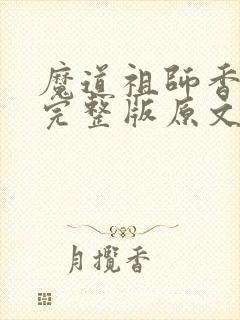 魔道祖師香
完整版原文
月攬香